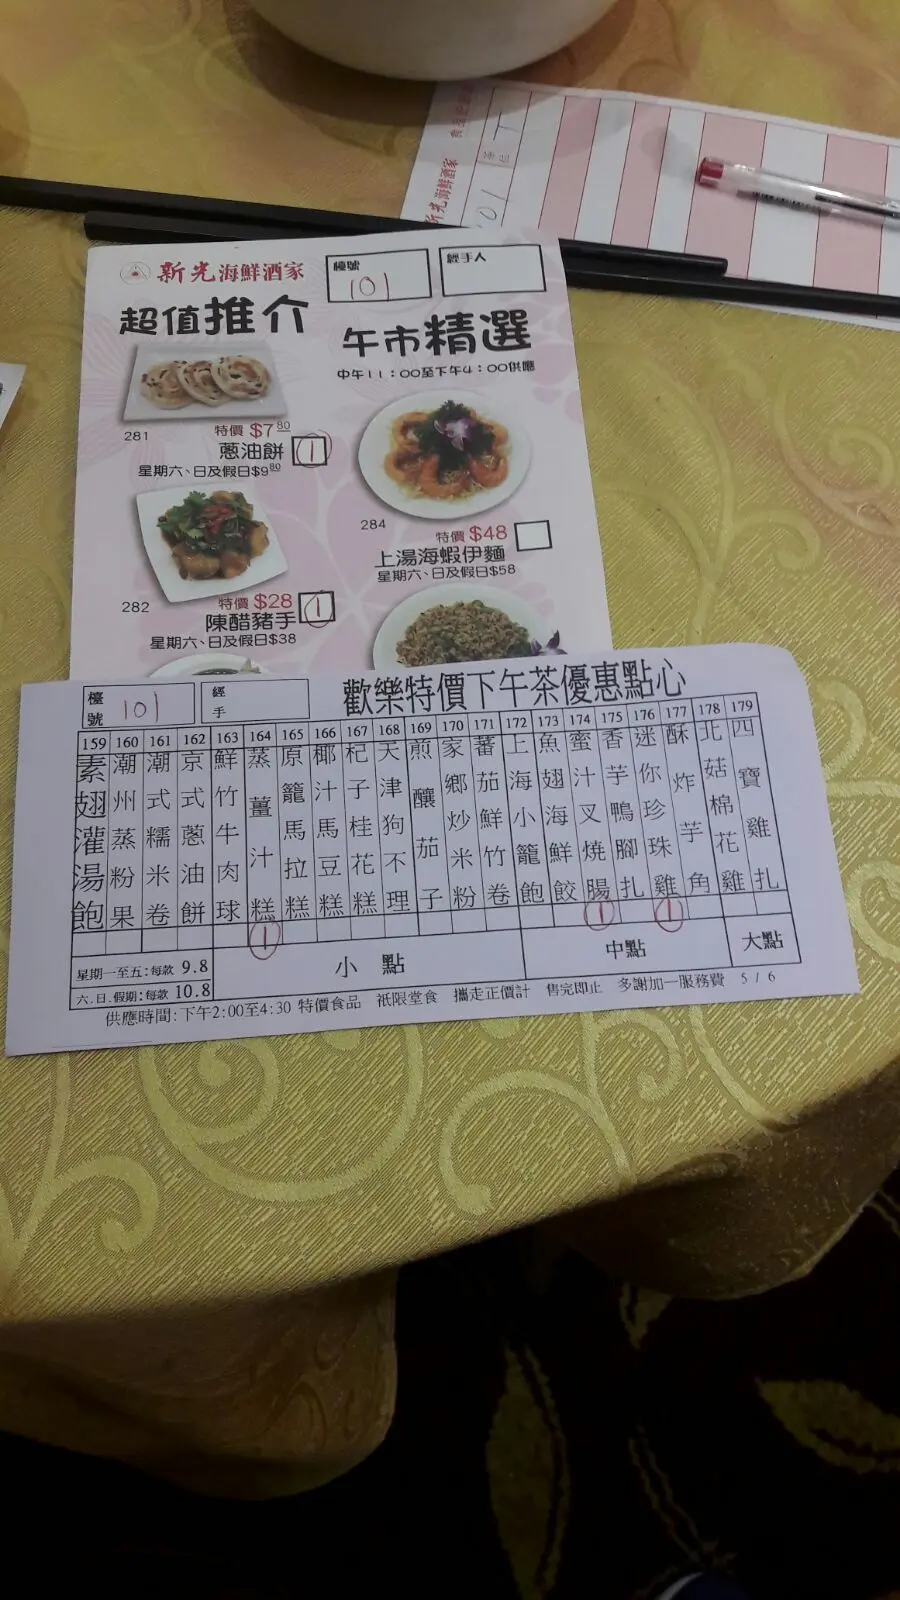 新光海鮮酒家
檯號
101
經手人
超值推介
午市精選
中午11:00至下午4:00供應
281
特價 $7.80
蔥油餅
1
星期六、日及假日$9.80
284
特價 $48
上湯海蝦伊麵
星期六、日及假日$58
282
特價 $28
陳醋豬手
1
星期六、日及假日$38
新光海鮮酒家
檯號
101
經手
歡樂特價下午茶優惠點心
159 素翅灌湯飽
160 潮州蒸粉果
161 潮式糯米卷
162 京式蔥油餅
163 鮮竹牛肉球
164 蒸薑汁糕 1
165 原籠馬拉糕
166 椰汁馬豆糕
167 杞子桂花糕
168 天津狗不理
169 煎釀茄子
170 家鄉炒米粉
171 蕃茄鮮竹卷
172 上海小籠飽
173 魚翅海鮮餃
174 蜜汁叉燒腸 1
175 香芋鴨腳扎
176 迷你珍珠雞 1
177 酥炸芋角
178 北菇棉花雞
179 四寶雞扎
小點
中點
大點
星期一至五:每款 9.8
六.日.假期:每款 10.8
供應時間:下午2:00至4:30 特價食品 祇限堂食 攜走正價計 售完即止 多謝加一服務費 5/6